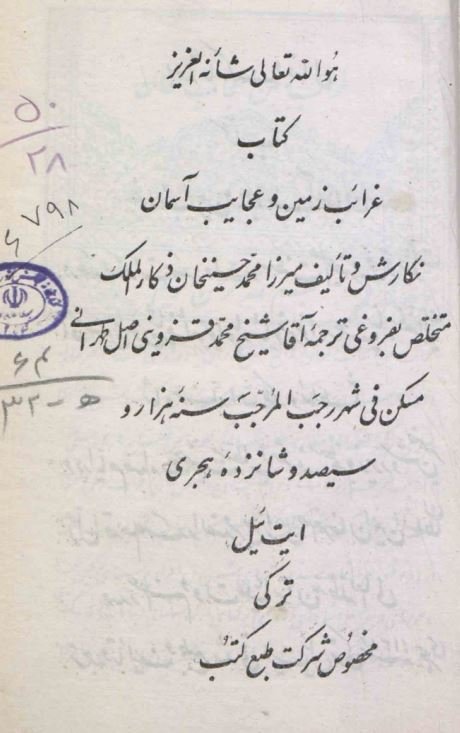 هو الله تعالی شأنه العزیز
کتاب
غرائب زمین و عجایب آسمان
نگارش و تألیف میرزا محمد حسینخان ذکاء الملک
متخلص بفروغی ترجمهٔ آقا شیخ محمد قزوینی اصل طهرانی
مسکن فی شهر رجب المرجب سنه هزار و
سیصد و شانزده هجری
ایت ئیل
ترکی
مخصوص شرکت طبع کتب
۵۰
۲۸
۷۹۸